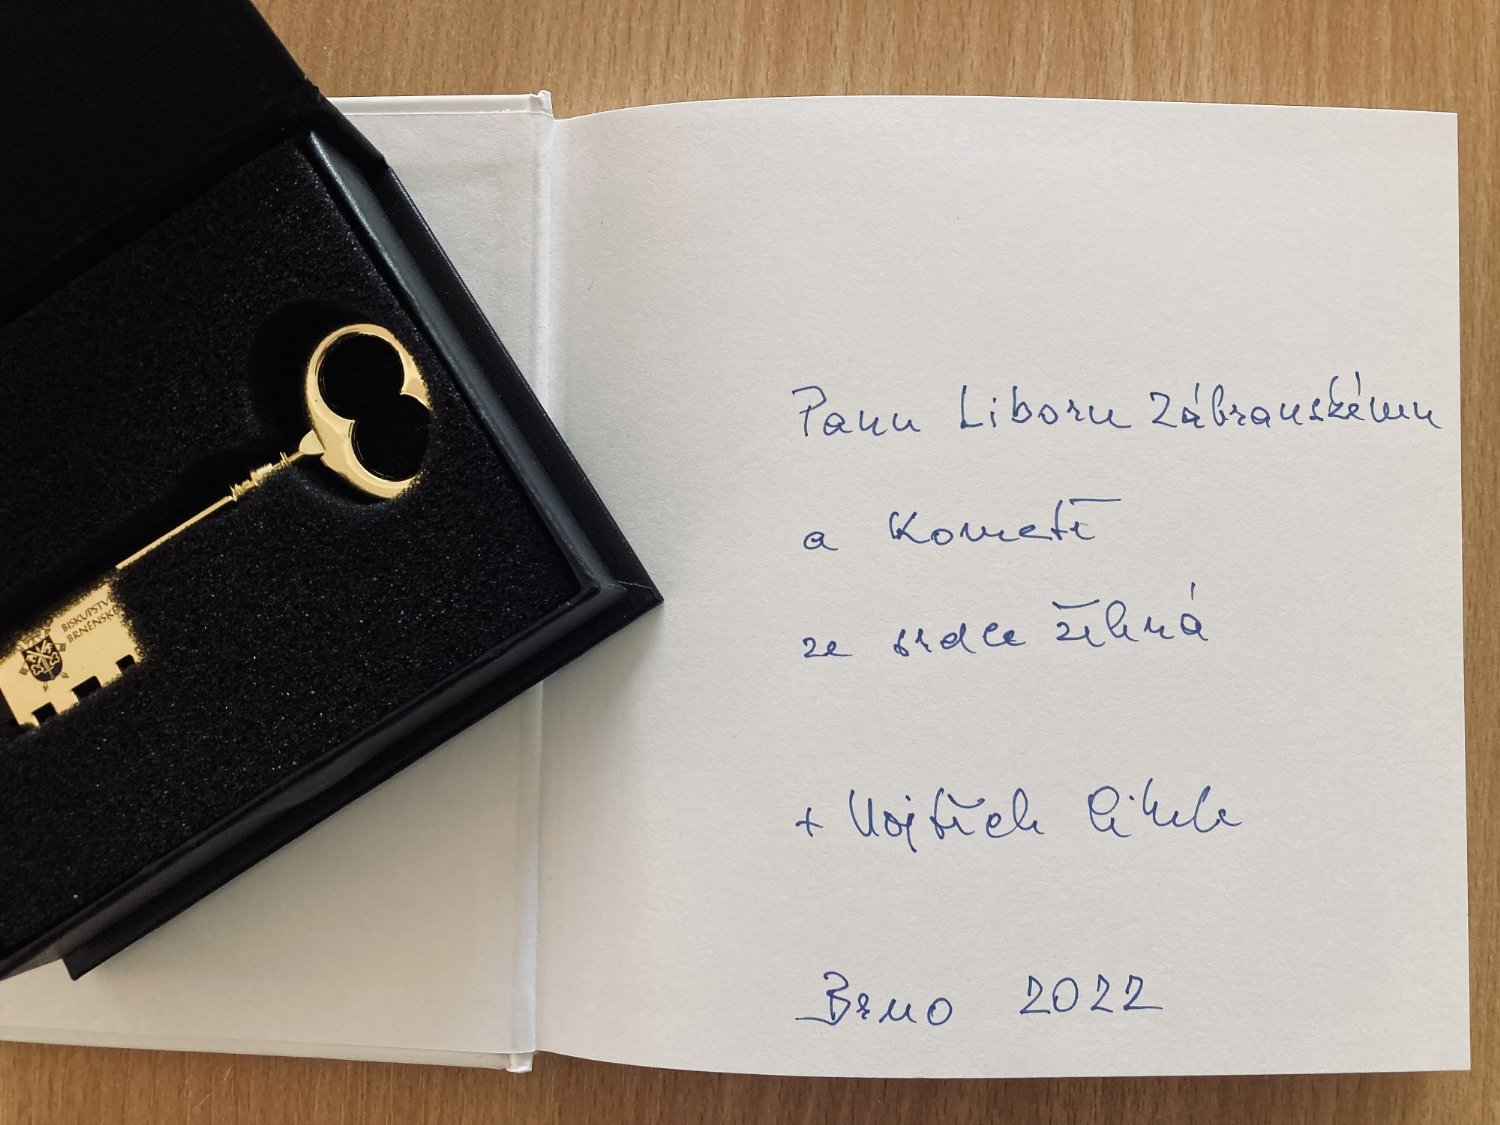 BISKUPSTVÍ
BRNĚNSKÉ
Panu Liboru Zábranskému
a Kometě
ze srdce žehná
+ Vojtěch Cikrle
Brno 2022